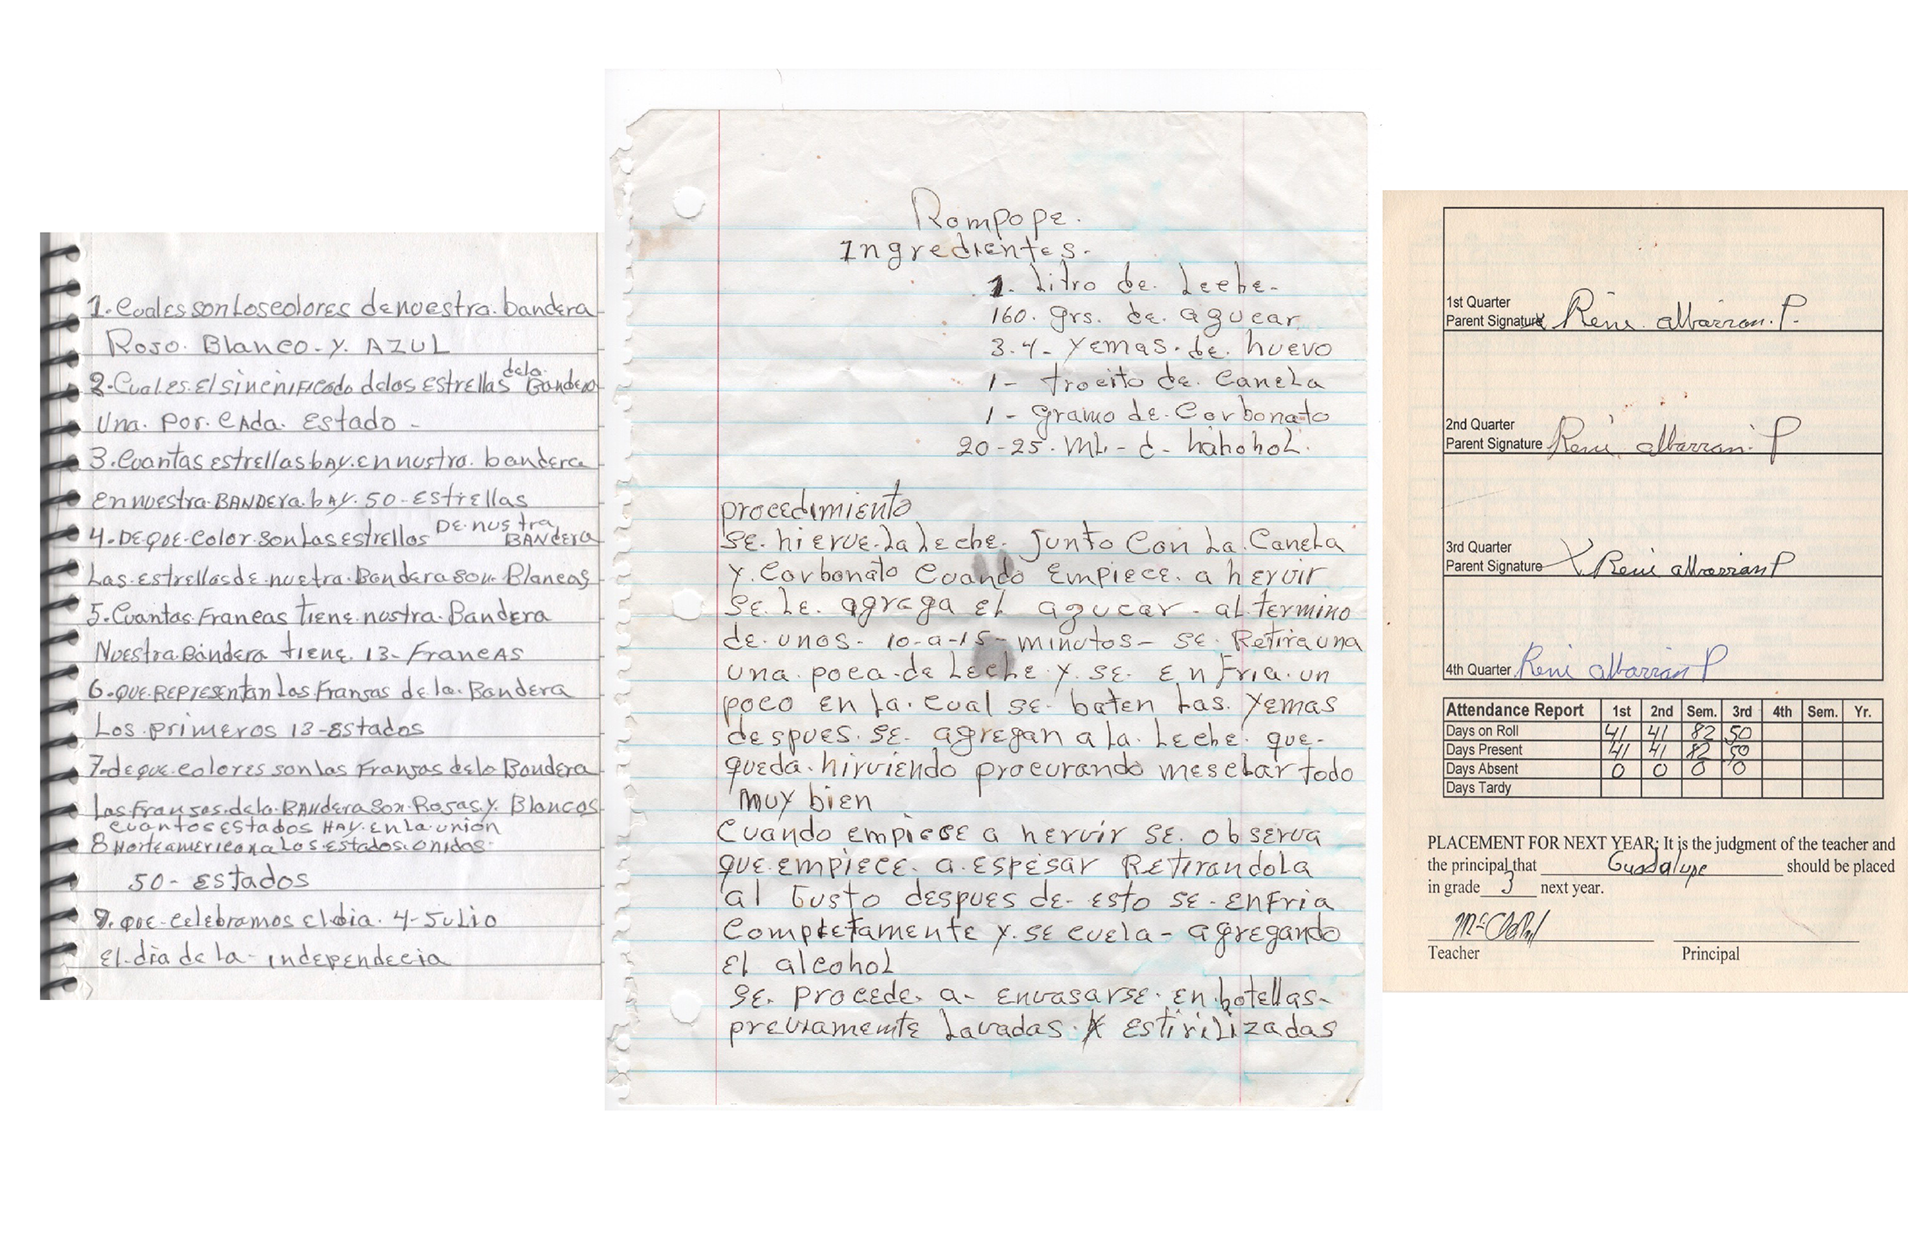 1. Cuales son Los colores de nuestra. bandera
Roso. Blanco - y. AZUL
2. Cual es. El sinenificado delas EstrEllas dela. Bandera
Una. por. CAda. Estado -
3. Cuantas estrellas hAy. en nustra. bandera
En nuestra. BANDERA. hAy. 50 - EstrEllas
4. DE QUE. Color. son Las estrellos DE. nustra BANDERA
Las. estrellas de. nuetra. Bandera son. Blancas
5. Cuantas Francas tiene. nostra. Bandera
Nuestra. Bandera tiene. 13 - FrancAs
6. QUE. REPRESENtan las Fransas de la. Bandera
Los. primeros 13 - Estados
7. de que. colores son las Fransas delo Bandera
Las Fransas. de la. BANdera son. Rosas. y. Blancos
cuantos estados HAY. En La. union
8 Norteamericana Los. Estados. Unidos.
50 - Estados
9. QUE. celebramos El dia. 4 - Julio
El. dia de La - independecia
Rompope.
Ingredientes.
1. Litro de. Leche -
160. grs. de. azucar
3. 4 - yemas. de. huevo
1 - trocito de. Canela
1 - gramo de. Carbonato
20 - 25. ML - d - hahohol.
procedimiento
SE. hierve. La Leche. Junto Con La. Canela
y. Carbonato Cuando Empiece. a hervir
se. Le. agraga El azucar - al termino
de. unos - 10 - a - 15 - minutos - se. Retira una
una. poca. de Leche. y. se. En Fria. un
poco En La. Cual se. baten Las. Yemas
despues. se. agregan a La. Leche. que -
queda. hirviendo procurando mesclar todo
MUY bien
Cuando empiese a hervir se. observa
que. empiece. a. espesar Retirandola
al Gusto despues de - esto se - enfria
Completamente y. se cuela - agregando
El alcohol
se. procede. a - envasarse. en. botellas -
previamente Lavadas. y estirilizadas
1st Quarter
Parent Signature x René albarran. P.
2nd Quarter
Parent Signature René albarran. P
3rd Quarter
Parent Signature X René albarran P
4th Quarter René Albarran P
Attendance Report 1st 2nd Sem. 3rd 4th Sem. Yr.
Days on Roll 41 41 82 50
Days Present 41 41 82 50
Days Absent 0 0 0 0
Days Tardy
PLACEMENT FOR NEXT YEAR: It is the judgment of the teacher and
the principal that Guadalupe should be placed
in grade 3 next year.
Teacher Principal